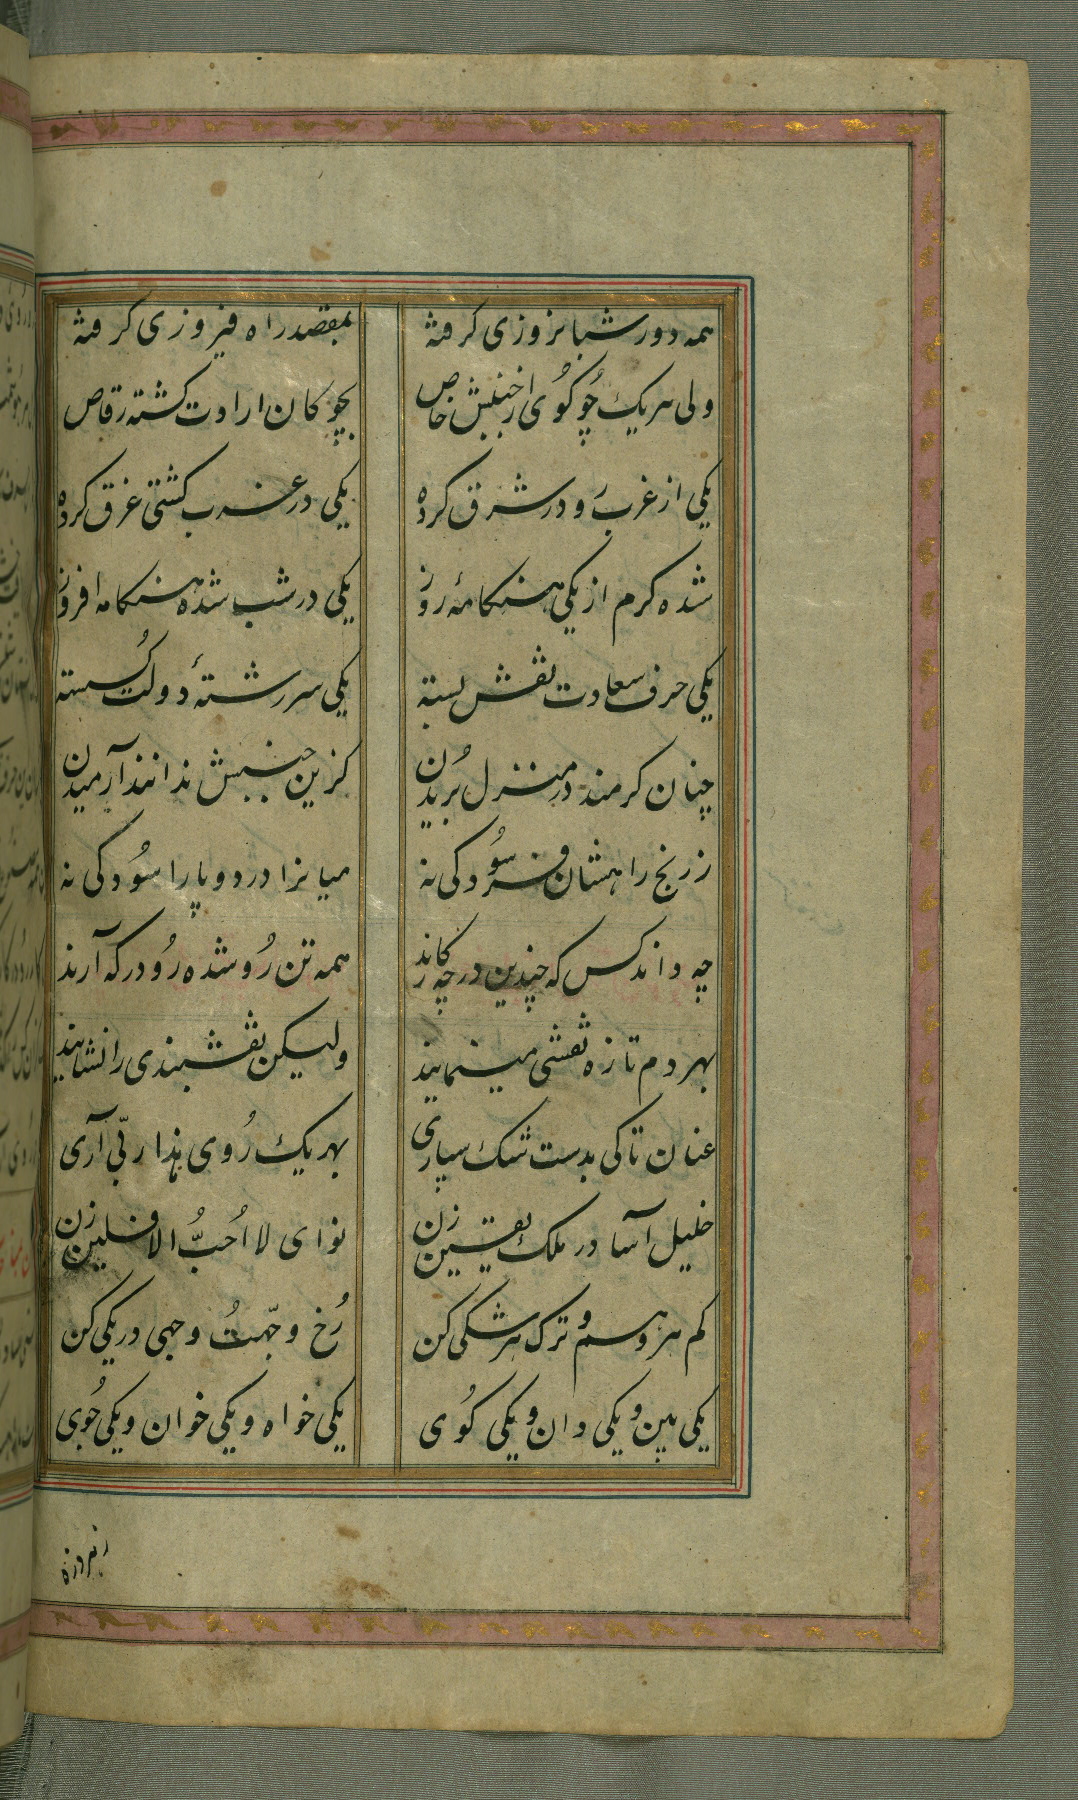 همه دور شبانروزی گرفته بمقصد راه فیروزی گرفته
ولی هریک چو گوی از جنبش خاص بچوکان ارادت گشته رقاص
یکی از غرب رو در شرق کرده یکی در غرب کشتی غرق کرده
شده گرم از یکی هنگامهٔ روز یکی در شب شده هنگامه افروز
یکی حرف سعادت نقش بسته یکی سررشتهٔ دولت گسسته
چنان گرمند در منزل بریدن کزین جنبش ندانند آرمیدن
ز رنج راهشان فرسودگی نه میانرا درد و پا را سودگی نه
چه داند کس که چندین درچه کارند همه تن رو شده رو در که آرند
بهر دم تازه نقشی مینمایند ولیکن نقشبندی را نشایند
عنان تا کی بدست شک سپاری بهر یک روی هذا ربی آری
خلیل آسا در ملک یقین زن نوای لا احب الافلین زن
کم هر وهم و ترک هر شکی کن رخ وجهت وجهی در یکی کن
یکی بین و یکی دان و یکی گوی یکی خواه و یکی خوان و یکی جوی